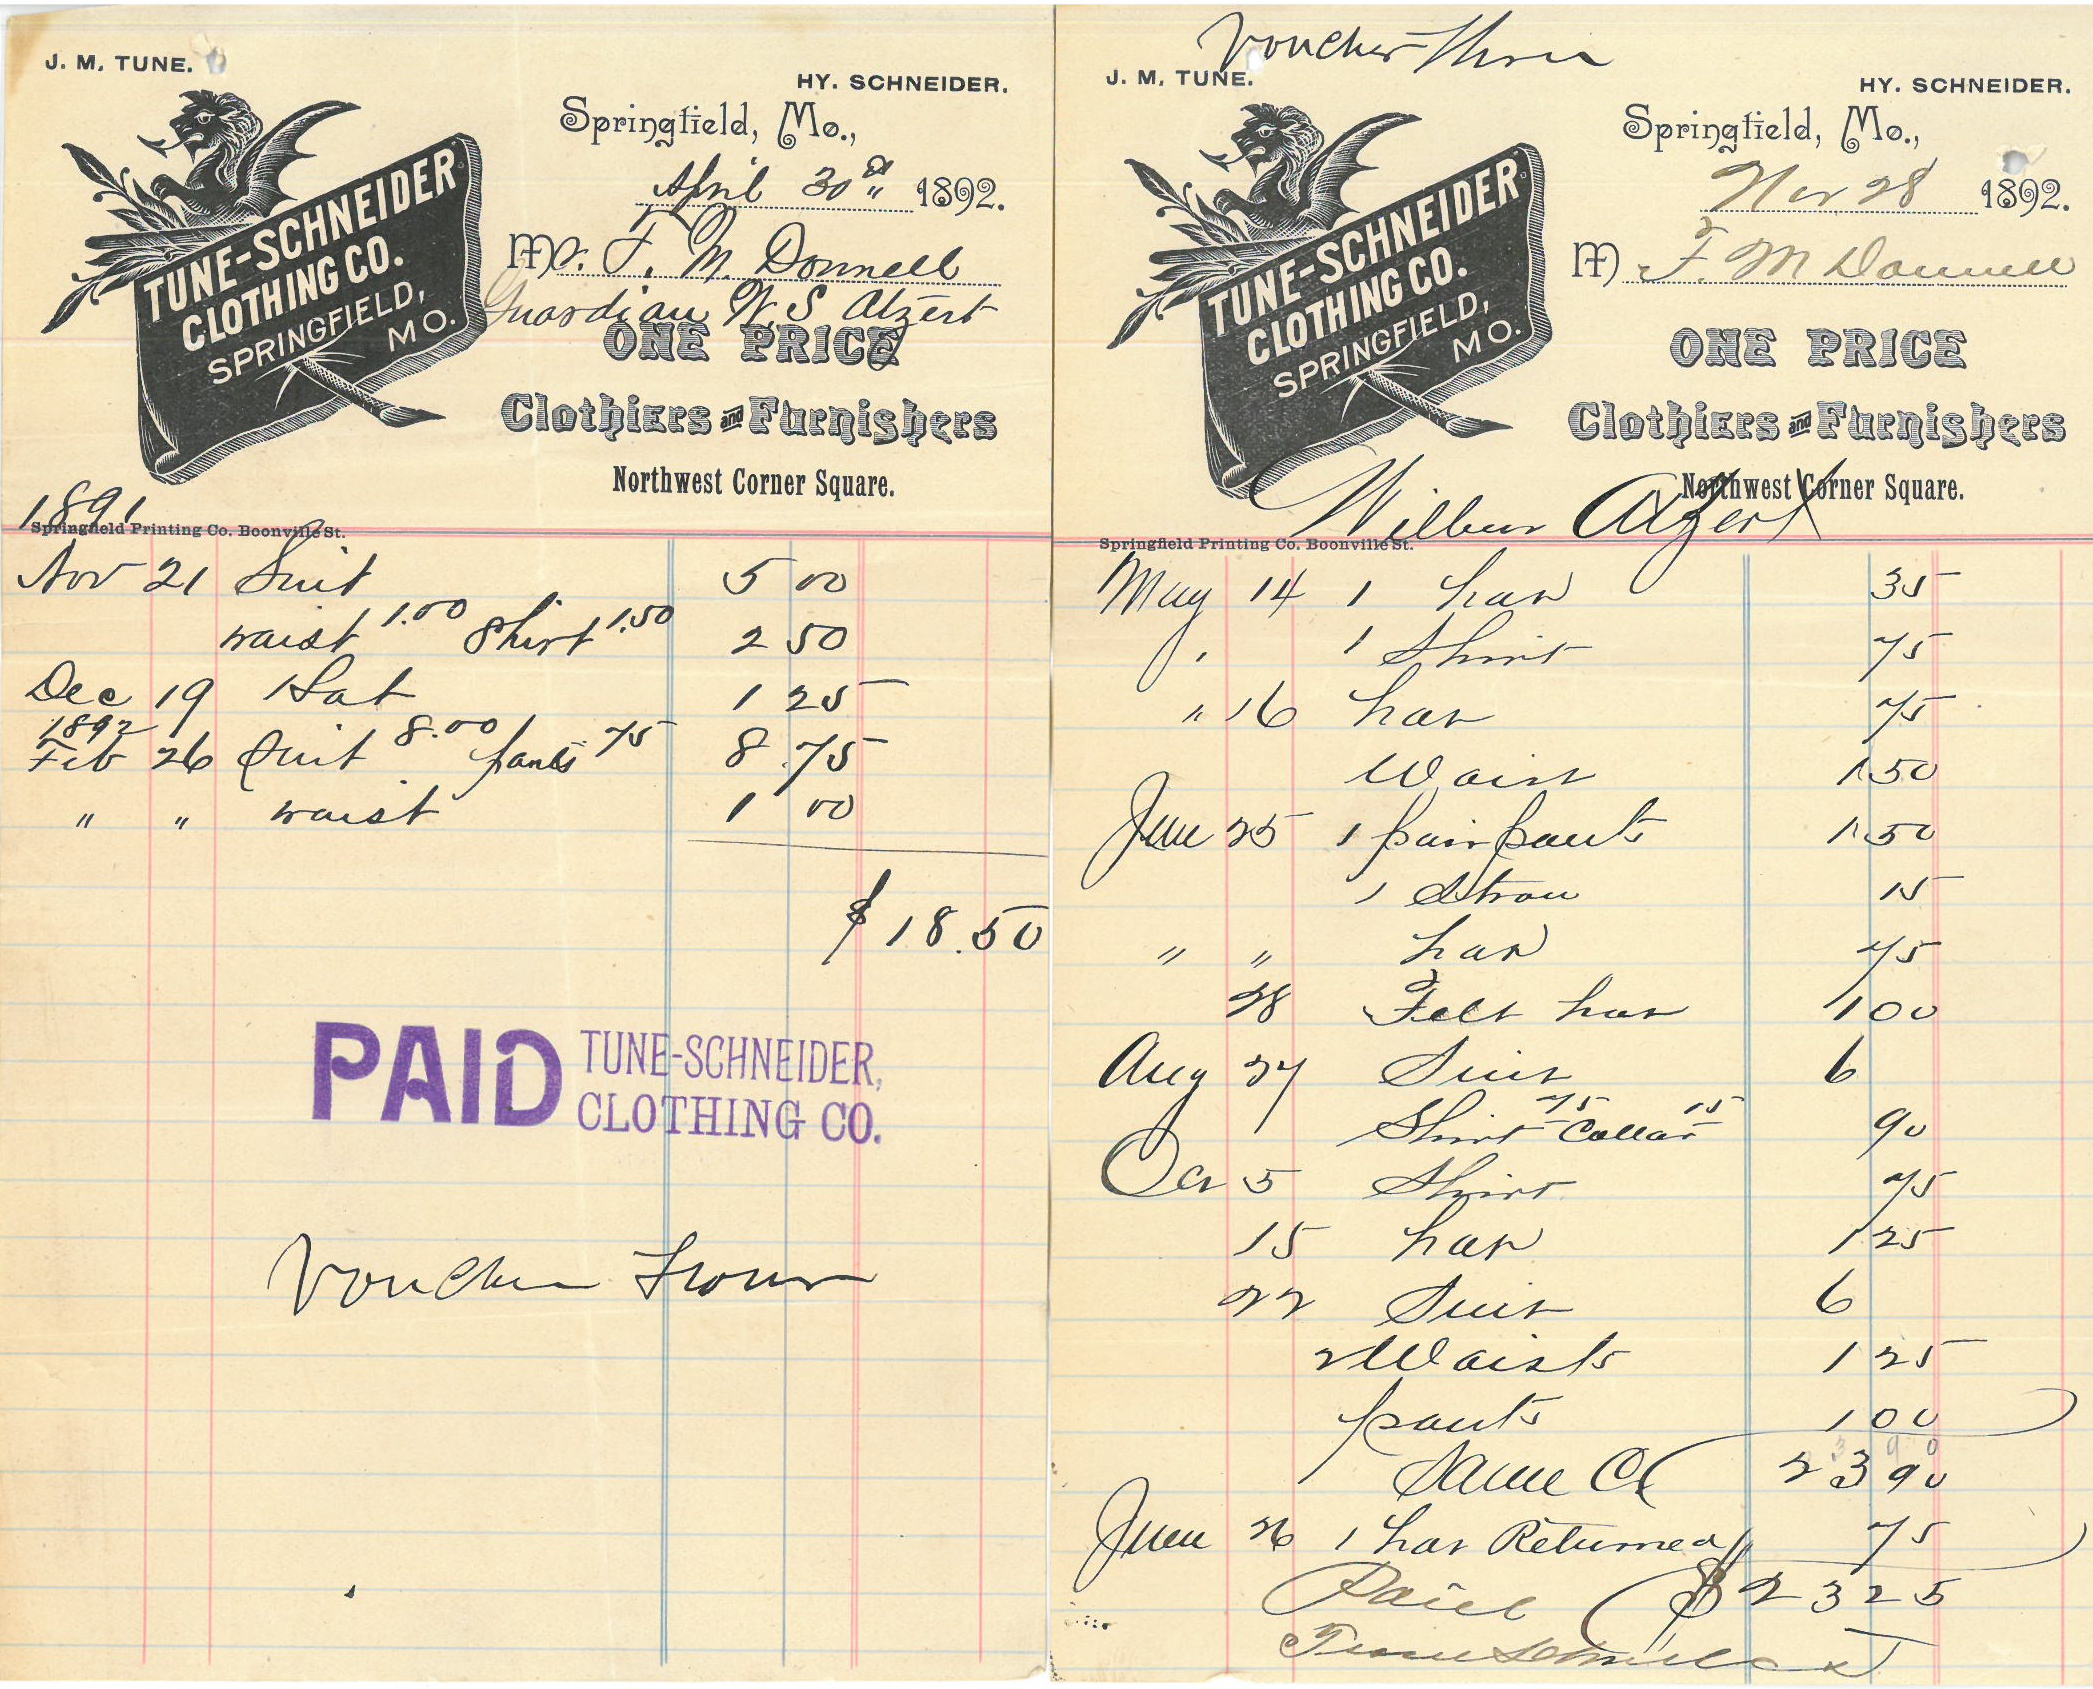 J. M. TUNE.
HY. SCHNEIDER.
Springfield, Mo.,
April 30th 1892.
TUNE-SCHNEIDER
CLOTHING CO.
SPRINGFIELD,
MO.
Mr. F. M. Donnell
Guardian W. S Atzert
ONE PRICE
Clothiers and Furnishers
Northwest Corner Square.
1891
Springfield Printing Co. Boonville St.
Nov 21 Suit 5 00
waist 1.00 Shirt 1.50 2 50
Dec 19 Hat 1 25
1892
Feb 26 Suit 8.00 pants 75 8 75
" " waist 1 00
$ 18.50
PAID TUNE-SCHNEIDER,
CLOTHING CO.
Voucher
Voucher Three
J. M. TUNE.
HY. SCHNEIDER.
Springfield, Mo.,
Nov 28 1892.
TUNE-SCHNEIDER
CLOTHING CO.
SPRINGFIELD,
MO.
M F. M Donnell
ONE PRICE
Clothiers and Furnishers
Northwest Corner Square.
Wilbur Atzert
Springfield Printing Co. Boonville St.
May 14 1 hat 35
" 1 Shirt 75
" 16 hat 75
Waist 1 50
June 25 1 pair pants 1 50
1 Straw 15
" " hat 75
28 Felt hat 1 00
Aug 27 Suit 6
Shirt 75 Collar 15 90
Oct 5 Shirt 75
15 hat 1 25
22 Suit 6
2 Waists 1 25
pants 1 00
23 90
June 26 1 hat Returned 75
Paid $ 23 25